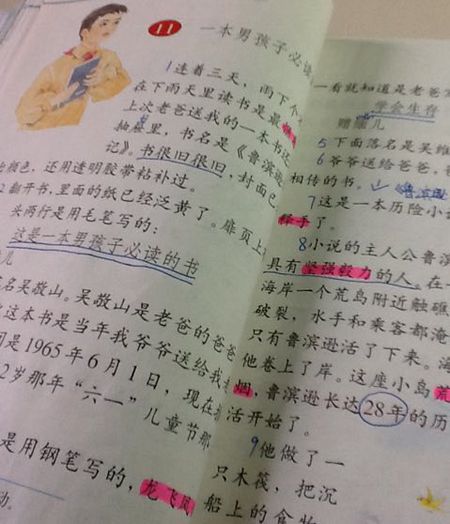 11 一本男孩子必读
1连着三天，雨下个
在下雨天里读书是最
上次老爸送我的一本书
抽屉里，书名是《鲁滨逊
记》。书很旧很旧，封面已
颜色，还用透明胶带粘补过。
2翻开书，里面的纸已经泛黄了。扉页上
头两行是用毛笔写的：
这是一本男孩子必读的书
儿
名吴敬山。吴敬山是老爸的爸爸
这本书是当年我爷爷送给我
是1965年6月1日，现在
2岁那年“六一”儿童节那
是用钢笔写的，龙飞凤
动。
一看就知道是老爸
学会生存
赠继儿
5下面落名是吴维
6爷爷送给爸爸，
相传的书。
7这是一本历险小
释手了。
8小说的主人公鲁滨
具有坚强毅力的人。在一
海岸一个荒岛附近触礁
破裂，水手和乘客都淹
只有鲁滨逊活了下来。海
他卷上了岸。这座小岛荒
烟，鲁滨逊长达28年的历
活开始了。
9他做了一
只木筏，把沉
船上的食物